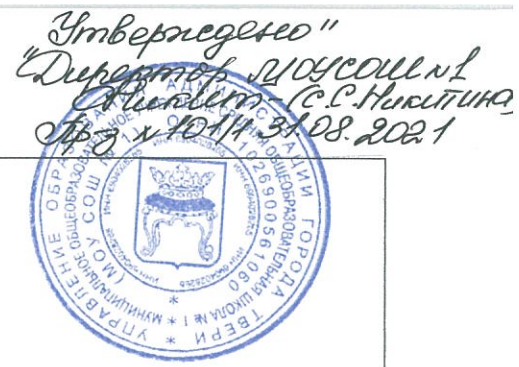 Утверждено"
"Директор МОУ СОШ №1
(С.С. Никитина)
Пр-з. № 101/1 31.08.2021
УПРАВЛЕНИЕ ОБРАЗОВАНИЯ АДМИНИСТРАЦИИ ГОРОДА ТВЕРИ *
МУНИЦИПАЛЬНОЕ ОБЩЕОБРАЗОВАТЕЛЬНОЕ ОБЩЕОБРАЗОВАТЕЛЬНАЯ ШКОЛА № 1 *
(МОУ СОШ
1026900561060